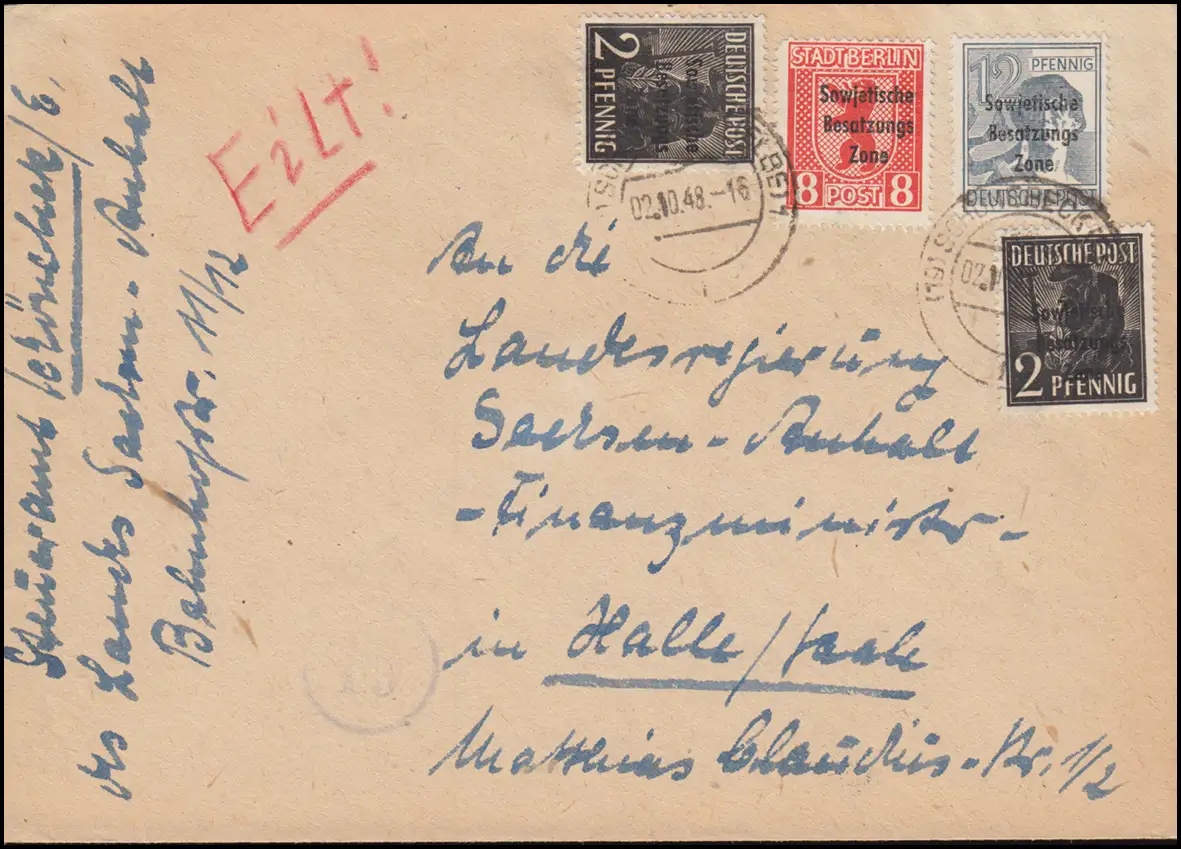 Steueramt Schönebeck/E.
des Landes Sachsen-Anhalt
Bahnhofstr. 11/12
Eilt!
DEUTSCHE POST
2
PFENNIG
Sowjetische
Besatzungs
STADT BERLIN
Sowjetische
Besatzungs
Zone
8 POST 8
12 PFENNIG
Sowjetische
Besatzungs
Zone
DEUTSCHE POST
DEUTSCHE POST
Sowjetische
Besatzungs
2 PFENNIG
02.10.48.-16
An die
Landesregierung
Sachsen-Anhalt
-Finanzminister-
in Halle/Saale
Matthias Claudius-Str. 1/2